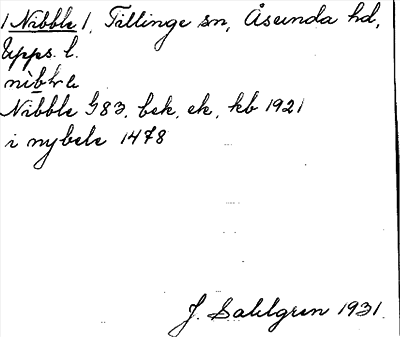 1 Nibble 1, Tillinge sn, Åsunda hd,
Upps. l.
Nibble G83, bek, ek, kb 1921
i nybele 1478
J. Sahlgren 1931.